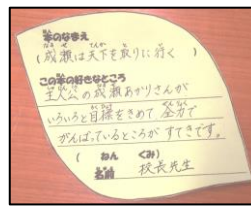 本のなまえ
(成瀬は天下を取りに行く)
この本の好きなところ
主人公の成瀬あかりさんが
いろいろと目標をきめて全力で
がんばっているところがすてきです。
( ねん くみ)
名前 校長先生